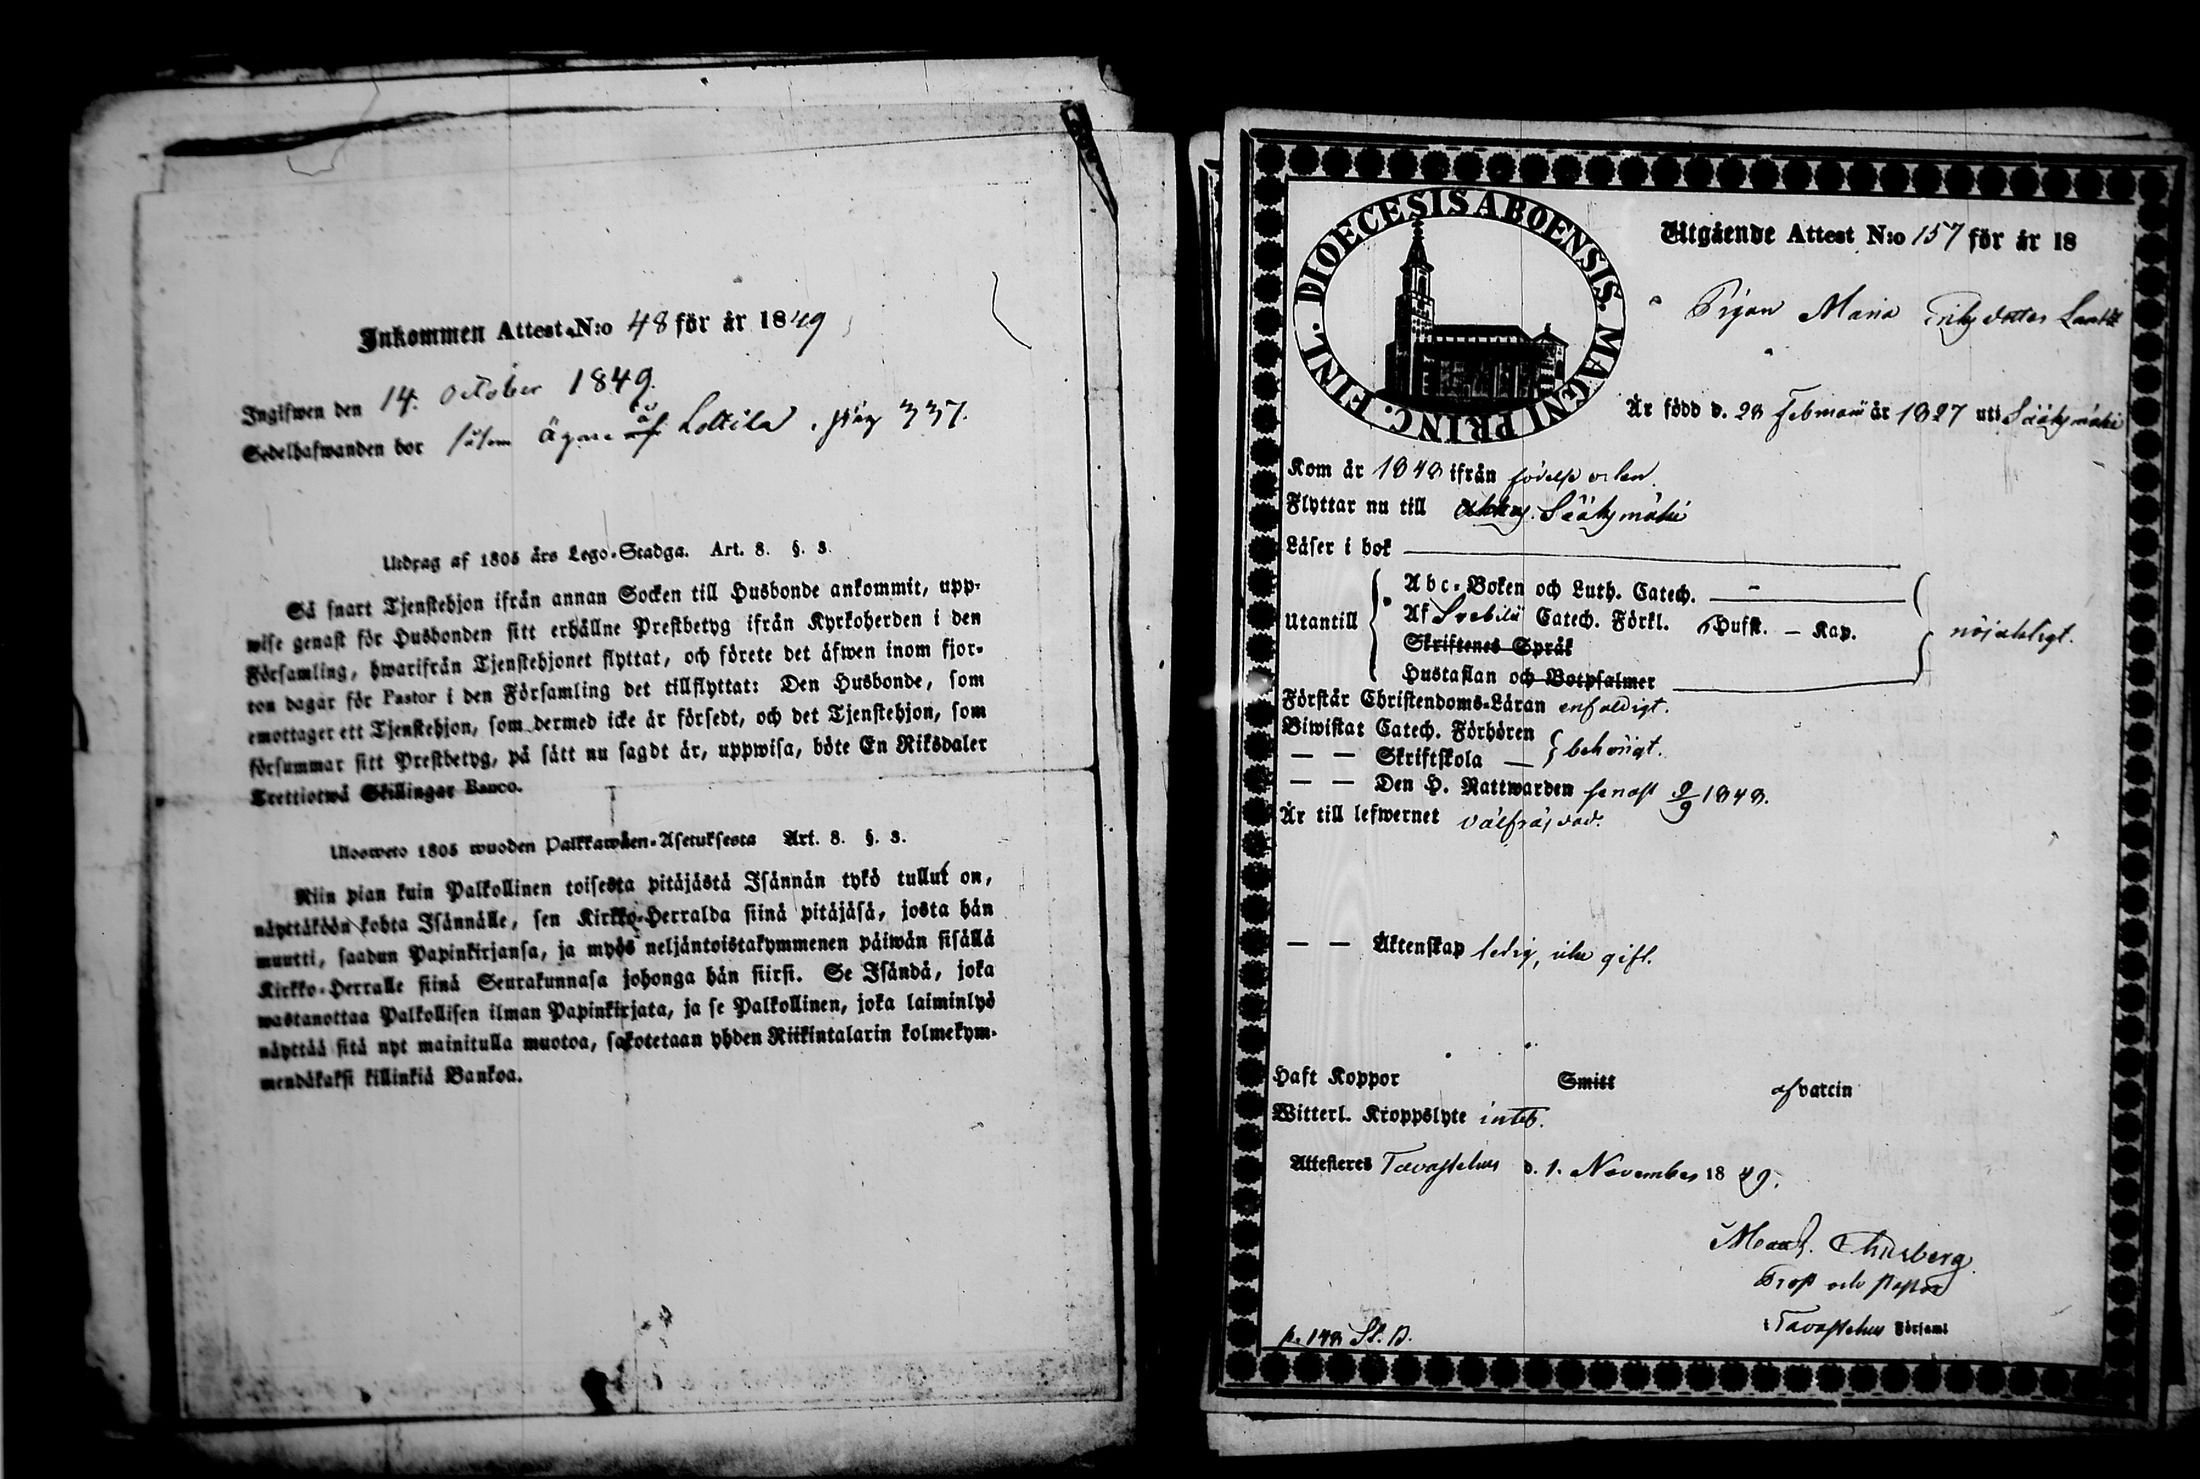 Inkommen Attest N:o 48 för år 1849
Ingifwen den 14. October 1849.
Sedelhafwanden bor såsom ägare af å Lottila. pag 337.
Utdrag af 1805 års Lego-Stadga. Art. 8. §. 3.
Så snart Tjenstehjon ifrån annan Socken till Husbonde ankommit, upp-
wise genast för Husbonden sitt erhållne Prestbetyg ifrån Kyrkoherden i den
Församling, hwarifrån Tjenstehjonet flyttat, och förete det äfwen inom fjor-
ton dagar för Pastor i den Församling det tillflyttat: Den Husbonde, som
emottager ett Tjenstehjon, som dermed icke är försedt, och det Tjenstehjon, som
försummar sitt Prestbetyg, på sätt nu sagdt är, uppwisa, böte En Riksdaler
Trettiotwå Skillingar Banco.
Ulosweto 1805 wuoden Palkkawäen-Asetuksesta Art. 8. §. 3.
Niin pian kuin Palkollinen toisesta pitäjästä Isännän tykö tullut on,
näyttäköön kohta Isännälle, sen Kirkko-Herralda siinä pitäjäsä, josta hän
muutti, saadun Papinkirjansa, ja myös neljäntoistakymmenen päiwän sisällä
Kirkko-Herralle siinä Seurakunnasa johonga hän siirsi. Se Isändä, joka
wastanottaa Palkollisen ilman Papinkirjata, ja se Palkollinen, joka laiminlyö
näyttää sitä nyt mainitulla muotoa, sakotetaan yhden Riikintalarin kolmekym-
mendäkaksi killinkiä Bankoa.
DIOECESIS ABOENSIS. MAGNI PRINC. FINL.
Utgående Attest N:o 157 för år 18
Pigan Maria Eriksdotter
Är född d. 28 Februarii år 1827 uti Sääksmäki
Kom år 1848 ifrån födelse orten.
Flyttar nu till Sääksmäki
Läser i bok
Utantill
Abc-Boken och Luth. Catech. –
Af Svebilii Catech. Förkl. Hufst. — Kap.
Skriftenes Språk
Hustaflan och Botpsalmer
nöjaktigt.
Förstår Christendoms-Läran enfaldigt.
Biwistat Catech. Förhören
— — Skriftskola — behörigt.
— — Den H. Nattwarden senast 9/9 1848.
Är till lefwernet välfräjdad.
— — Äktenskap ledig, icke gift.
Haft Koppor Smitt af vaccin
Witterl. Kroppslyte intet.
Attesteras Tavastehus d. 1. November 1849.
Prost och Pastor
i Tavastehus Församl
p. 148 St. B.